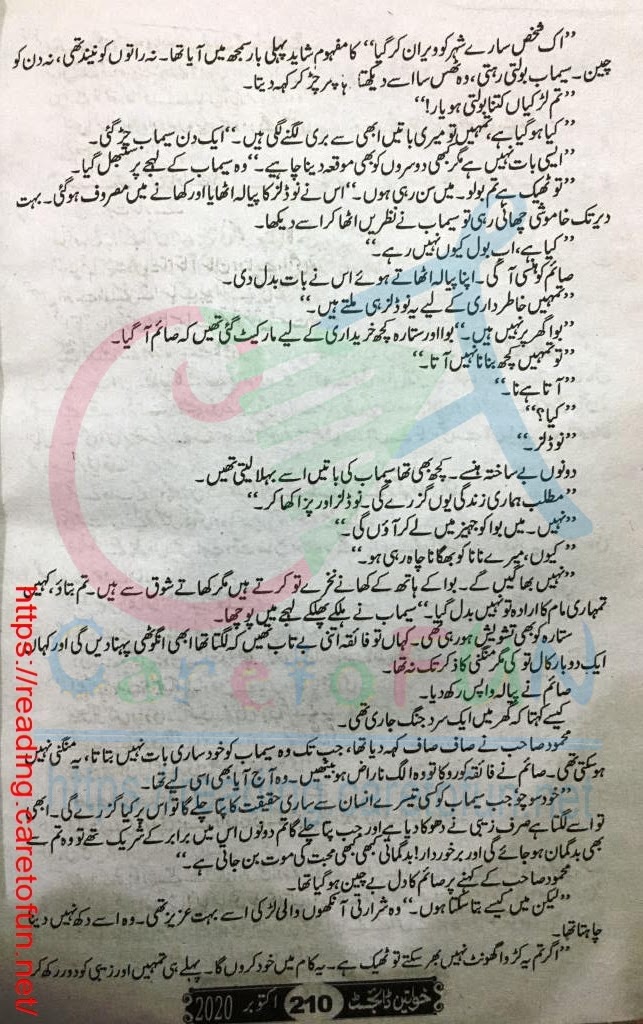 ”اک شخص سارے شہر کو ویران کر گیا“ کا مفہوم شاید پہلی بار سمجھ میں آیا تھا۔ نہ راتوں کو نیند تھی، نہ دن کو
چین۔ سیماب بولتی رہتی، وہ ٹھس سا اسے دیکھتا پھر چڑ کر کہہ دیتا۔
”تم لڑکیاں کتنا بولتی ہو یار!“
”کیا ہو گیا ہے، تمہیں تو میری باتیں ابھی سے بری لگنے لگی ہیں۔“ ایک دن سیماب چڑ گئی۔
”ایسی بات نہیں ہے مگر کبھی دوسروں کو بھی موقعہ دینا چاہیے۔“ وہ سیماب کے لہجے پر سنبھل گیا۔
”تو ٹھیک ہے تم بولو۔ میں سن رہی ہوں۔“ اس نے نوڈلز کا پیالہ اٹھایا اور کھانے میں مصروف ہو گئی۔ بہت
دیر تک خاموشی چھائی رہی تو سیماب نے نظریں اٹھا کر اسے دیکھا۔
”کیا ہے، اب بول کیوں نہیں رہے۔“
صائم کو ہنسی آ گئی۔ اپنا پیالہ اٹھاتے ہوئے اس نے بات بدل دی۔
”تمہیں خاطر داری کے لیے یہ نوڈلز ہی ملتے ہیں۔“
”بوا گھر پر نہیں ہیں۔“ بوا اور ستارہ کچھ خریداری کے لیے مارکیٹ گئی تھیں کہ صائم آ گیا۔
”تو تمہیں کچھ بنانا نہیں آتا۔“
”آتا ہے نا۔“
”کیا؟“
”نوڈلز۔“
دونوں بے ساختہ ہنسے۔ کچھ بھی تھا سیماب کی باتیں اسے بہلا لیتی تھیں۔
”مطلب ہماری زندگی یوں گزرے گی۔ نوڈلز اور پزا کھا کر۔“
”نہیں۔ میں بوا کو جہیز میں لے کر آؤں گی۔“
”کیوں، میرے نانا کو بھگانا چاہ رہی ہو۔“
”نہیں بھاگیں گے۔ بوا کے ہاتھ کے کھانے نخرے تو کرتے ہیں مگر کھاتے شوق سے ہیں۔ تم بتاؤ، کہیں
تمہاری مام کا ارادہ تو نہیں بدل گیا۔“ سیماب نے ہلکے پھلکے لہجے میں پوچھا۔
ستارہ کو بھی تشویش ہو رہی تھی۔ کہاں تو فائقہ اتنی بے تاب تھیں کہ لگتا تھا ابھی انگوٹھی پہنا دیں گی اور کہاں
ایک دو بار کال تو کی مگر منگنی کا ذکر تک نہ تھا۔
صائم نے پیالہ واپس رکھ دیا۔
کیسے کہتا کہ گھر میں ایک سرد جنگ جاری تھی۔
محمود صاحب نے صاف صاف کہہ دیا تھا، جب تک وہ سیماب کو خود ساری بات نہیں بتاتا، یہ منگنی نہیں
ہو سکتی تھی۔ صائم نے فائقہ کو روکا تو وہ الگ ناراض ہو بیٹھیں۔ وہ آج آیا بھی اسی لیے تھا۔
”خود سوچو جب سیماب کو کسی تیسرے انسان سے ساری حقیقت کا پتا چلے گا تو اس پر کیا گزرے گی۔ ابھی
تو اسے لگتا ہے صرف زیبی نے دھوکا دیا ہے اور جب پتا چلے گا تم دونوں اس میں برابر کے شریک تھے تو وہ تم سے
بھی بدگمان ہو جائے گی اور برخوردار! بدگمانی کبھی کبھی محبت کی موت بن جاتی ہے۔“
محمود صاحب کے کہنے پر صائم کا دل بے چین ہو گیا تھا۔
”لیکن میں کیسے بتا سکتا ہوں۔“ وہ شرارتی آنکھوں والی لڑکی اسے بہت عزیز تھی۔ وہ اسے دکھ نہیں دینا
چاہتا تھا۔
”اگر تم یہ کڑوا گھونٹ نہیں بھر سکتے تو ٹھیک ہے۔ یہ کام میں خود کروں گا۔ پہلے ہی تمہیں اور زیبی کو دور رکھ کر
خواتین ڈائجسٹ 210 اکتوبر 2020
Caretofun
https://reading.caretofun.net
https://reading.caretofun.net/